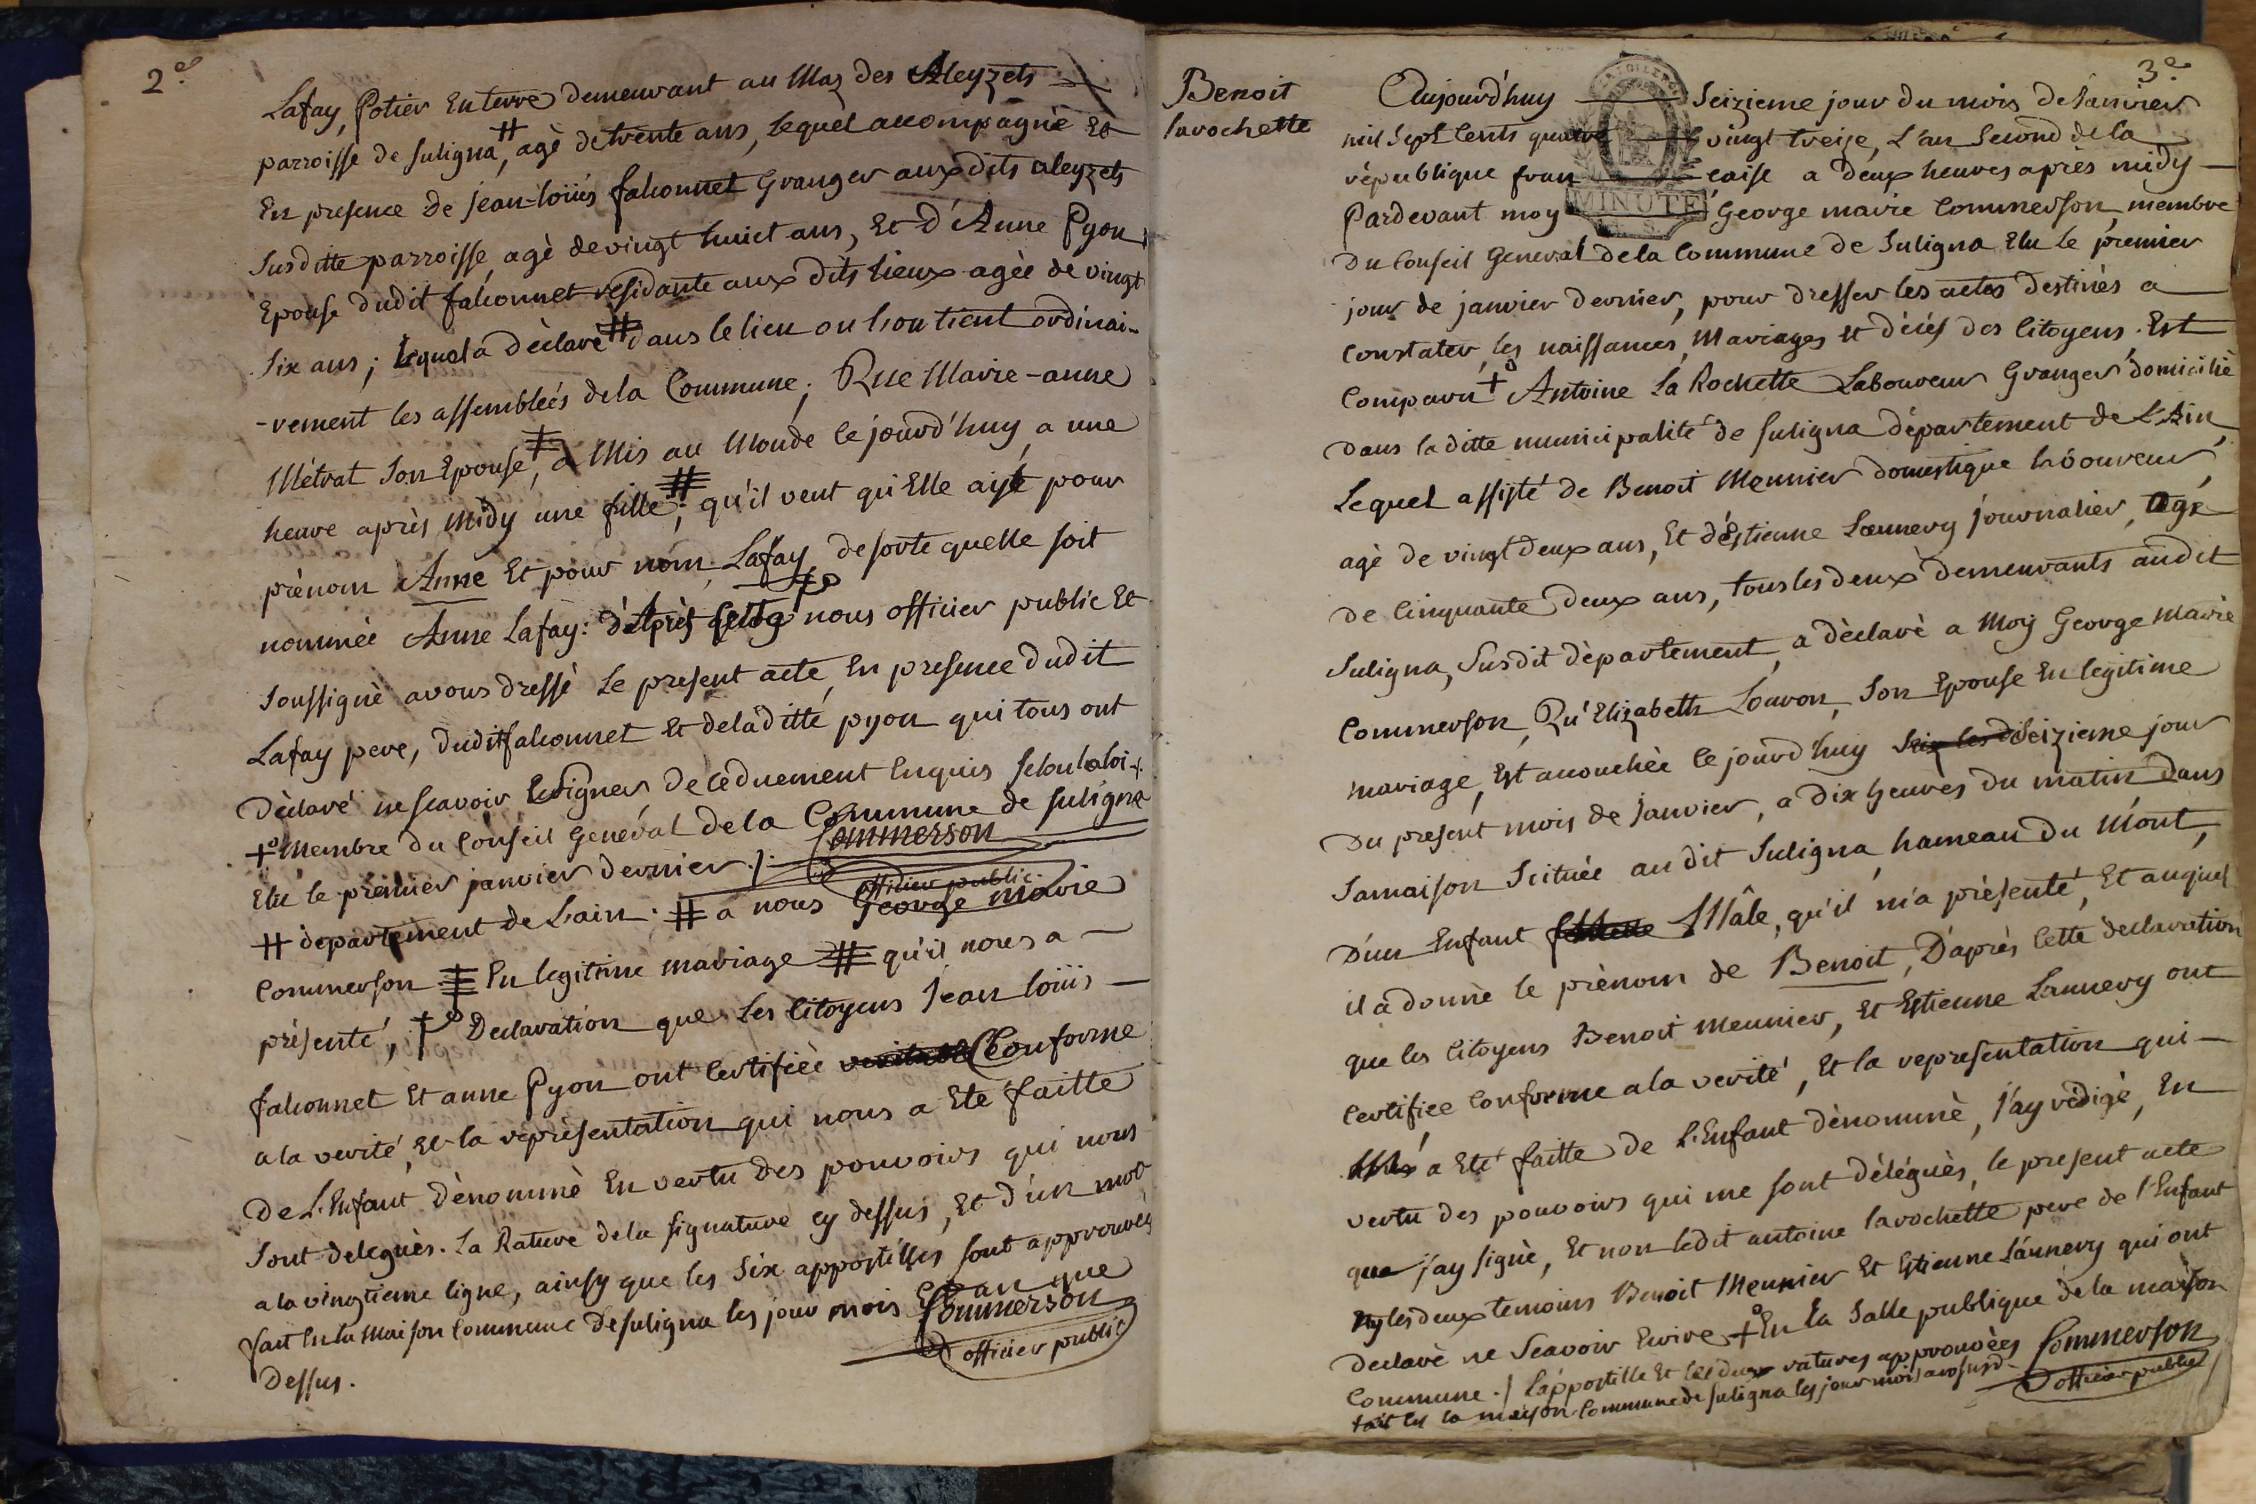 2e.
Lafay, Potier En terre demeurant au Maz des Aleyzets
parroisse de suligna ⧺, agè de trente ans, Lequel accompagnè Et
En presence de jean-loüis falconnet Granger aux dits aleyzets
Susditte parroisse, agè de vingt huict ans, Et d'Anne Pyon
Epouse dudit falconnet residante aux dits lieux agèe de vingt
Six ans; lequel a dèclarè ⧻ dans le lieu ou l'on tient ordinai-
-rement les assembleés de la Commune. Que Marie-anne
Mètrat Son Epouse, a Mis au Monde ce jourd'huy, a une
heure après Midy une fille; qu'il veut qu'Elle aist pour
prènom Anne Et pour nom Lafay desorte quelle soit
nommèe Anne Lafay: d'Après cette nous officier public Et
Soussignè avons dressè Le present acte, En presence dudit
Lafay pere, dudit falconnet Et de laditte pyon qui tous ont
Dèclaré ne Scavoir Signer de ce duement Enquis selon la loi -/-
+o Membre du Conseil Genéral de la Commune de suligna
Elu le premier janvier dernier ./. Commerson
officier public
⧺ departement de L'ain. ⧻ a nous George marie
Commerson ⧻ En legitime mariage ⧻ qu'il nous a —
présenté, Declaration que Les Citoyens Jean loüis —
falconnet Et anne Pyon ont Certifièe veritable Conforme
a la verité, Et la reprèsentation qui nous a Eté faitte
De L'Enfant Dènommè En vertu des pouvoirs qui nous
Sont deleguès. La Rature de la signature cy dessus, Et d'un mot
a la vingtieme ligne, ainsy que les Six appostilles sont approuvés
fait En la Maison Commune de suligna les jour mois Et an que
Dessus. Commerson
officier public
3e
Benoit
larochette
Aujourd'huy Seizieme jour du mois de Janvier
mil Sept Cents quatre vingt treize, L'an Second de la
république fran caise a deux heures après midy —
MINUTE
Pardevant moy George marie Commerson, membre
Du Conseil General de la Commune de Suligna Elu le premier
jour de janvier dernier, pour dresser les actes destinés a
Constater, les naissances, Mariages et décés des Citoyens. Est
Comparu + Antoine La Rochette Laboureur Granger domicilié
Dans la ditte municipalité de suligna département de L'Ain,
Lequel assisté de Benoit Meunier domestique laboureur,
agé de vingt deux ans, Et d'Estienne Lannery journalier, age
de Cinquante deux ans, tous les deux demeurants audit
Suligna, Susdit département, a dèclarè a Moÿ George Marie
Commerson, Qu'Elizabeth Louvon, Son Epouse En legitime
mariage, Est acouchée ce jourd'huy Seizieme jour
Du present mois de Janvier, a dix heures du matin dans
Samaison Scituée au dit Suligna, hameau du Mont,
D'un Enfant Mâle, qu'il m'a prèsenté, Et auquel
il a donnè le prènom de Benoit, D'après Cette declaration
que les Citoyens Benoit Meunier, Et Estienne Lannery ont
Certifiee Conforme a la verité, Et la representation qui —
a Eté faitte de L'Enfant dènommè, J'ay rèdigè, En
vertu des pouvoirs qui me sont délégués, le present acte
que j'ay signè, Et non ledit antoine larochette pere de l'Enfant
ny les deux temoins Benoit Meunier Et Estienne Lannery qui ont
Declarè ne Scavoir Ecrire +o En la Salle publique de la maison
Commune ./. L'appostille Et les deux ratures approuvées Commerson
fait En la maison Commune de suligna les jour mois an susd. officier public